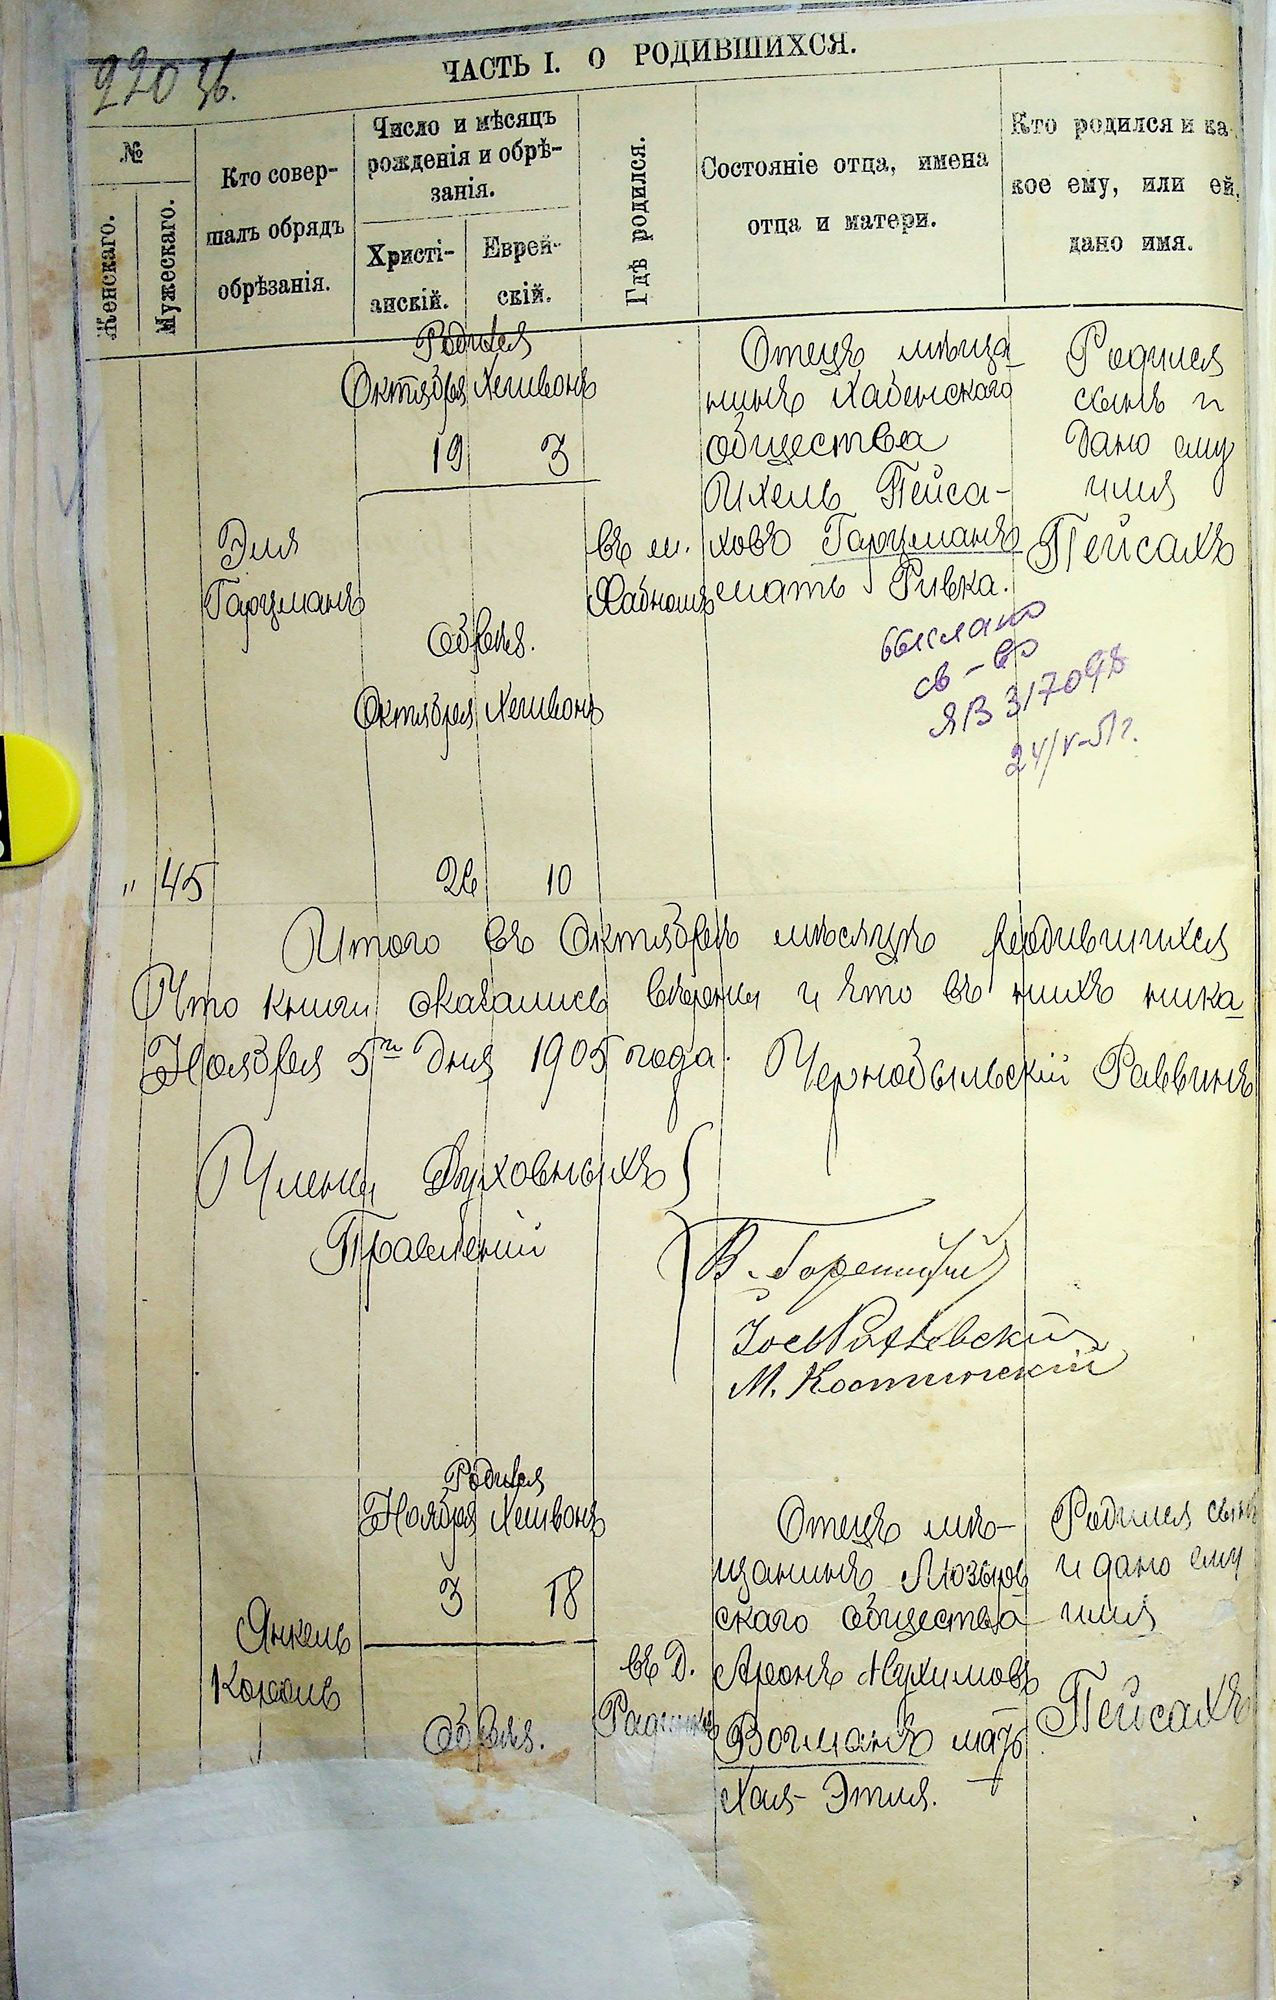 220 зв.
ЧАСТЬ I. О РОДИВШИХСЯ.
№
Женскаго.
Мужескаго.
Кто совер-
шалъ обрядъ
обрѣзанія.
Число и мѣсяцъ
рожденія и обрѣ-
занія.
Христі-
анскій.
Еврей-
скій.
Гдѣ родился.
Состояніе отца, имена
отца и матери.
Кто родился и ка-
кое ему, или ей,
дано имя.
" 45
Эля
Гарцманъ
Родился
Октября Хешвонъ
19 3
Обрѣз.
Октября Хешвонъ
26 10
въ м.
Хабномъ
Отецъ мѣща
нинъ Хабенскаго
общества
Ихель Пейса-
ховъ Гарцманъ
мать Ривка.
Родился
сынъ и
дано ему
имя
Пейсахъ
выслано
св-во
ЯВ 317098
24/V-51г.
Итого въ Октябрѣ мѣсяцѣ родившихся
Что книги оказались вѣрны и что въ нихъ ника
Ноября 5го дня 1905 года. Чернобыльскій Раввинъ
Члены Духовныхъ
Правленій
В. Горепицкій
М. Костинскій
Янкель
Король
Родился
Ноября Хешвонъ
3 18
Обрѣз.
въ д.
Отецъ мѣ-
щанинъ Мозыр
скаго общества
Аронъ Нухимовъ
Вогманъ мать
Хая-Этля.
Родился сынъ
и дано ему
имя
Пейсахъ